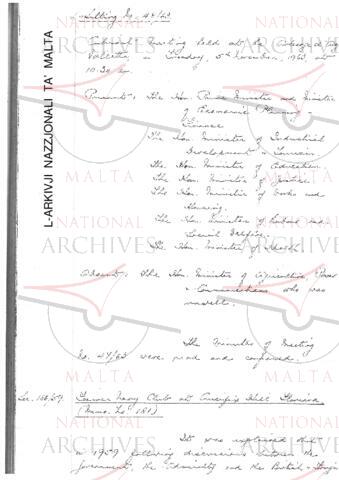 Sitting No. 48/63
Cabinet Meeting held at the
Valletta, on Tuesday, 5th November, 1963 at
10.30 a.m.
Present: The Hon. Prime Minister and Minister
of Economic Planning &
Finance
The Hon. Minister of Industrial
Development & Tourism
The Hon. Minister of Education
The Hon. Minister of Justice
The Hon. Minister of Works and
Housing
The Hon. Minister of Labour and
Social Welfare
The Hon. Minister of Health.
Absent: The Hon. Minister of Agriculture, Power
& Communications who was
unwell.
The Minutes of Meeting
No. 47/63 were read and confirmed.
Navy Club at Crucifix Hill Floriana
(Memo. No 181)
It was explained that
in 1959 following discussions between the
Government, the Admiralty and the British
L-ARKIVJI NAZZJONALI TA' MALTA
NATIONAL
ARCHIVES
MALTA